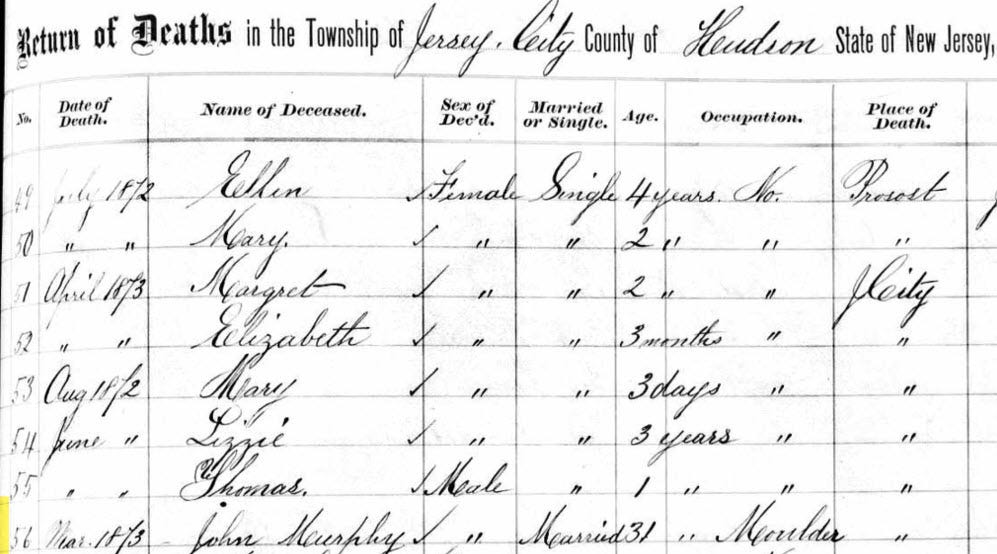 Return of Deaths in the Township of Jersey City County of Hudson State of New Jersey,
No. Date of Death. Name of Deceased. Sex of Dec'd. Married or Single. Age. Occupation. Place of Death.
49 July 1872 Ellen Female Single 4 years. No. Prosost
50 " " Mary. " " 2 " " "
51 April 1873 Margret " " 2 " " J City
52 " " Elizabeth " " 3 months " "
53 Aug 1872 Mary " " 3 days " "
54 June " Lizzie " " 3 years " "
55 " " Thomas. Male " 1 " " "
56 Mar. 1873 John Murphy " Married 31 " Moulder "